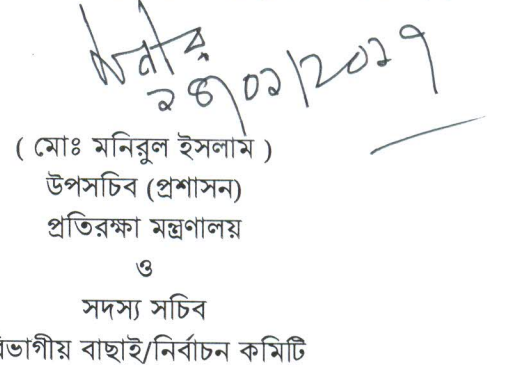 ২৪/০১/২০১৭
( মোঃ মনিরুল ইসলাম )
উপসচিব (প্রশাসন)
প্রতিরক্ষা মন্ত্রণালয়
ও
সদস্য সচিব
বিভাগীয় বাছাই/নির্বাচন কমিটি